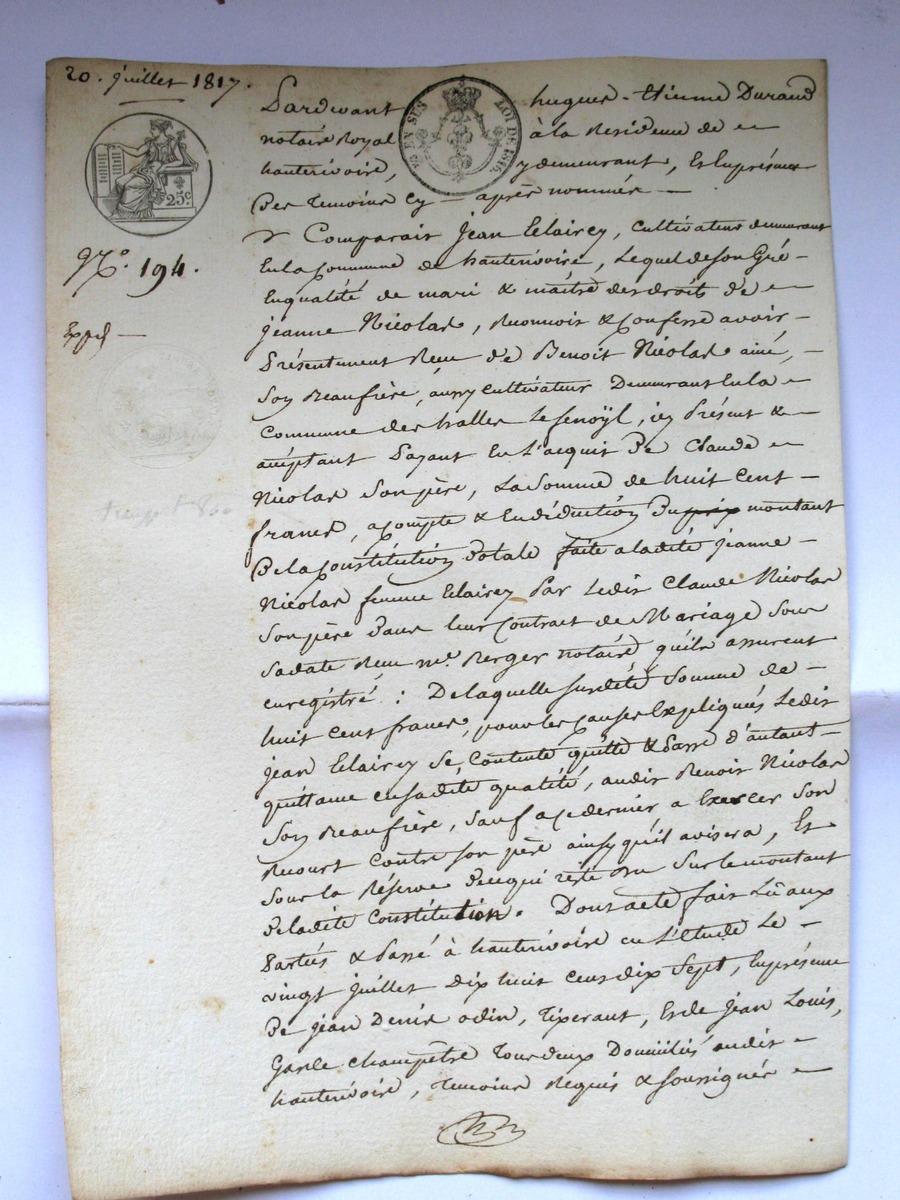 20. juillet 1817.
25c
EN SUS
LOI DE 1816.
N.o 194.
Expé —
Pardevant hugues-Etienne Durand
notaire Royal à la Residence de
hauterivoire, y demeurant, Et En présence
Des Temoins Cy — après nommés —
Comparait Jean Eclairey, Cultivateur demeurant
En la Commune de hauterivoire, Lequel de son Gré —
En qualité de mari & maitre des droits de
jeanne Nicolas, Reconnoit & Confesse avoir —
Présentement Reçu de Benoit Nicolas ainé, —
Son Beaufrère, aussy Cultivateur Demeurant En la
Commune des halles Le fenoÿl, icy Présent &
acceptant Payant En L'acquit De Claude
Nicolas Son père, La Somme de huit Cent —
francs, acompte & En déduction Du prix montant
De la Constitution Dotale faite a ladite Jeanne —
Nicolas femme Eclairey Par Ledit Claude Nicolas
Son père Dans leur Contract de Mariage Sous
Sa date Reçu me. Berger notaire qu'ils assurent
enregistré : De laquelle susdite Somme de —
huit Cent francs, pour les Causes Expliquées Ledit
jean Eclairey Se Contente quitte & Passe d'autant
quittance en sadite qualité, audit Benoit Nicolas
Son Beaufrère, Sauf a ce dernier a Exercer Son
Recourt Contre Son père ainsy qu'il avisera, Et
Sous la Réserve De ce qui reste Du Sur le montant
De ladite Constitution. Dont acte fait Lû aux
Parties & Passé à hauterivoire en L'Etude Le —
vingt juillet dix huit Cent dix Sept, En présence
De jean Denis odin, Tixerant, Et de Jean Louis,
Garde Champêtre Tous deux Domiciliés audit
hauterivoire, Temoins Requis & Soussignés